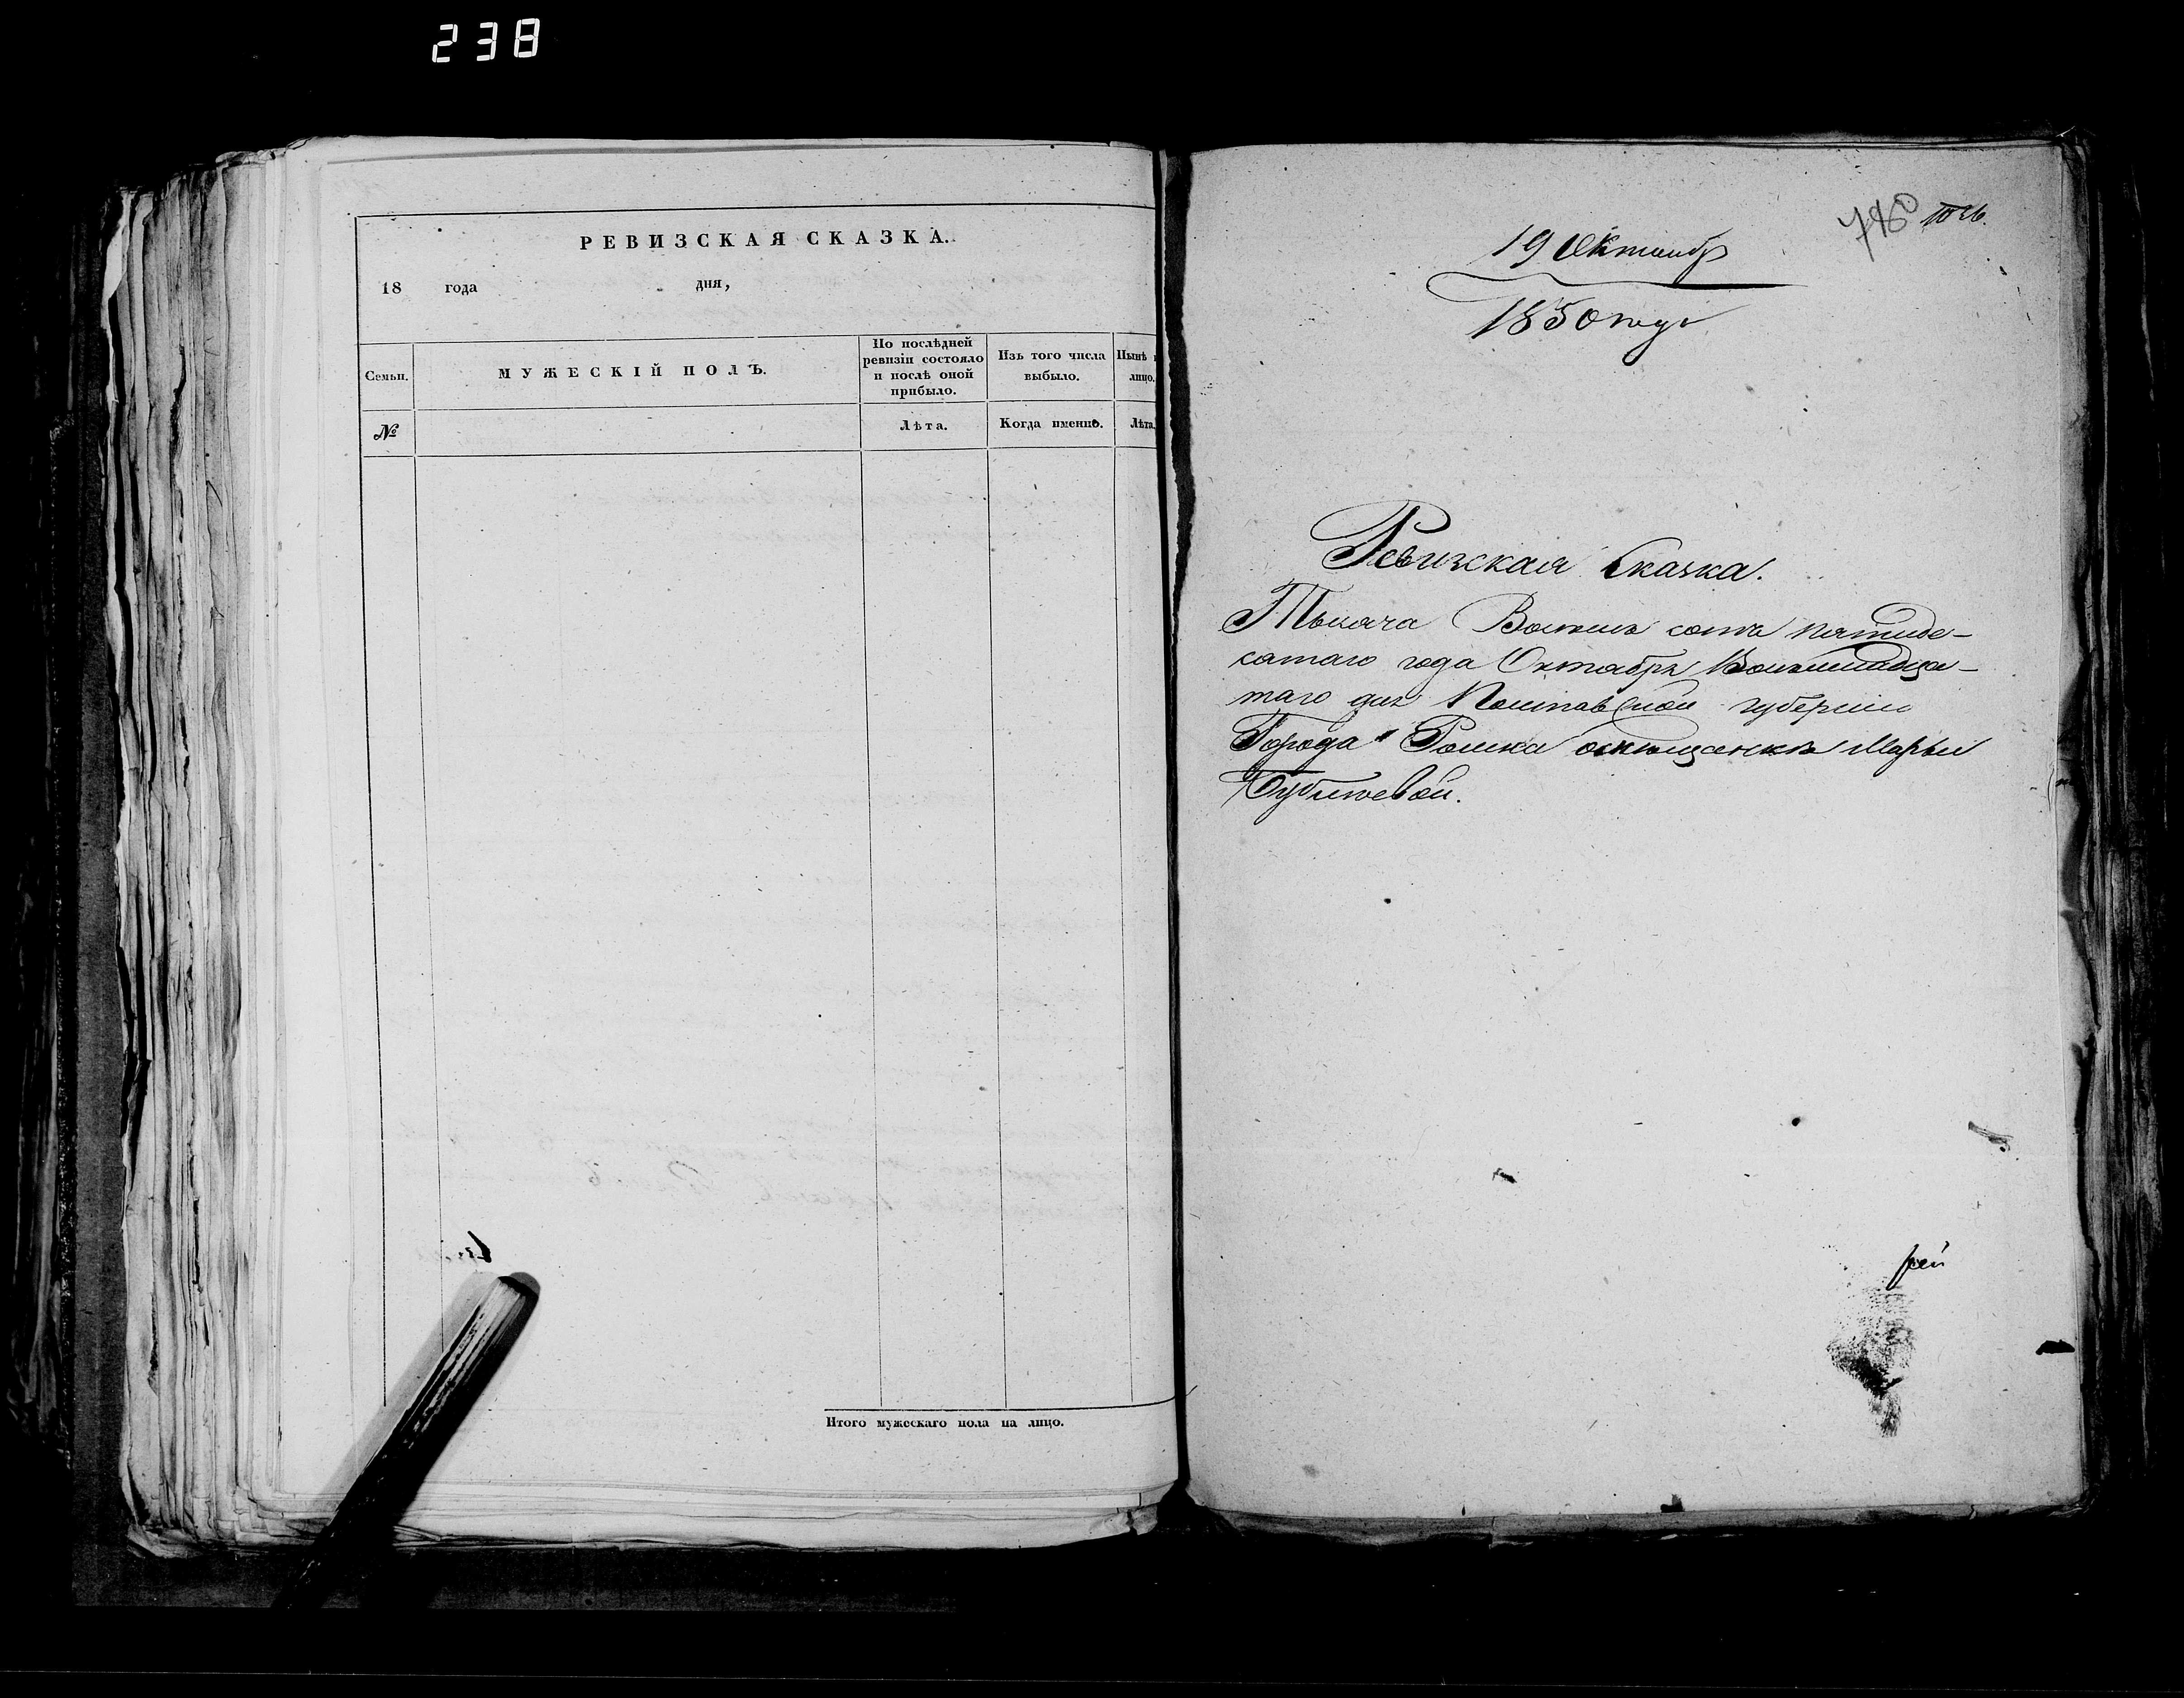 238
РЕВИЗСКАЯ СКАЗКА.
18 года дня,
Семьи.
МУЖЕСКІЙ ПОЛЪ.
По послѣдней
ревизіи состояло
и послѣ оной
прибыло.
Изъ того числа
выбыло.
Нынѣ
лицо.
№
Лѣта.
Когда именно.
Лѣта.
Итого мужескаго пола на лицо.
19 Октября
1850 году
Ревизская Сказка.
Тысяча Восемь сотъ пятиде-
сятаго года Октября Восемнадца-
таго дня Полтавской губерніи
Города Ромна о мещанкѣ Марьи